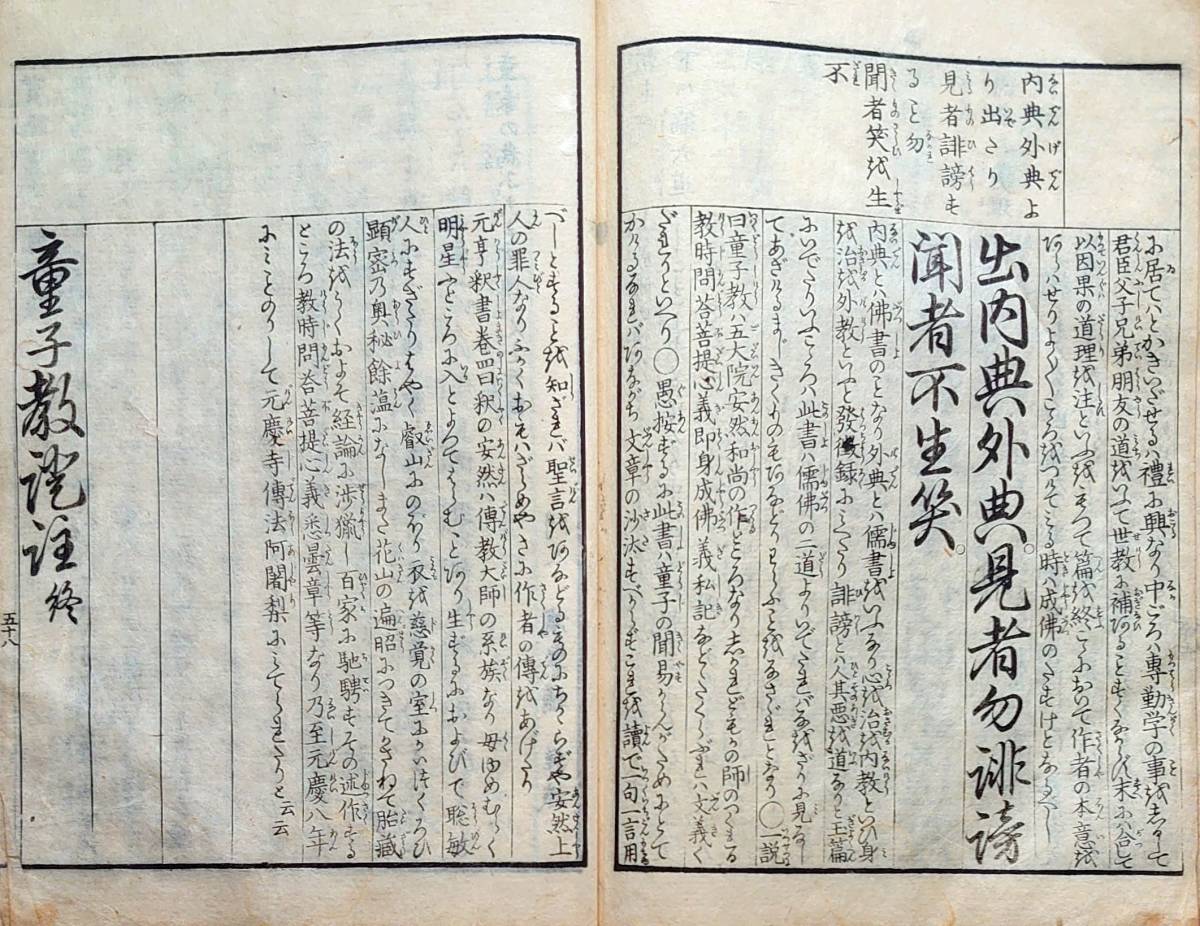 内典外典よ
り出たり
見者誹謗も
ること勿
聞者笑を生
不
に居てハとかきいだせるハ禮に興なり中ごろハ専勤学の事をしるして
君臣父子兄弟朋友の道をいひて世教に補あることすくなからず末にハ合して
以因果の道理を注といふをもつて篇を終こゝにおいて作者の本意を
あらハせりよく/\こゝろをつけてみる時ハ成佛のたすけとなるべし
出内典外典。見者勿誹謗
聞者不生笑。
内典とハ佛書のことなり外典とハ儒書をいふなり心を治を内教といひ身
を治を外教といふと發徴録にみえたり誹謗とハ人其悪を道なりと玉篇
にいでたりいふこゝろハ此書ハ儒佛の二道よりいでたれバなをざりに見るし
てあざけるまじきくものもわらふことをなさざれとなり〇一説
曰童子教ハ五大院安然和尚の作ところなりしかれどもかの師のつくれる
教時問荅菩提心義即身成佛義私記などにくらぶれハ文義
ざれりといへり〇愚按ずるに此書ハ童子の聞易からんがためにとて
かけるなれバあながち文章の沙汰すべからずこれを讀で一句一言用
べしとすることを知ざれバ聖言をあなどるものにちかゝらずや安然上
人の罪人なりふかくおもハざらめやさて作者の傳をあげたり
元亨釈書巻四曰釈の安然ハ傳教大師の系族なり母ゆめむらく
明星ふところに入とよつてはらむことあり生ずるにおよびて聡敏
人にすぎたりはやく叡山にのぼり衣を慈覚の室にかいつくろひ
顕密の奥秘餘蕴になしまた花山の遍昭につきてかさねて胎藏
の法をうくおよそ経論に渉獵し百家に馳騁すその述作する
ところ教時問荅菩提心義悉曇章等なり乃至元慶八年
にみことのりして元慶寺傳法阿闍梨にみてられたりと云云
童子教證註終
五十八